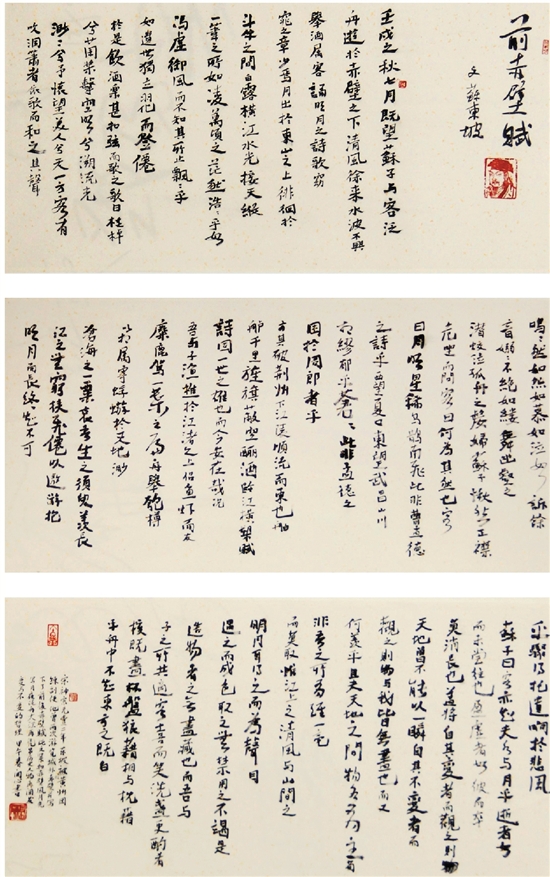 前赤壁賦
文蘇東坡
壬戌之秋七月既望蘇子与客泛
舟遊於赤壁之下清風徐来水波不興
舉酒属客誦明月之詩歌窈
窕之章少焉月出於東山之上徘徊於
斗牛之間白露橫江水光接天縱
一葦之所如凌萬頃之茫然浩々乎如
馮虛御風而不知其所止飄々乎
如遺世獨立羽化而登僊
於是飲酒樂甚扣弦而歌之歌曰桂棹
兮蘭槳擊空明兮溯流光
渺々兮予懷望美人兮天一方客有
吹洞簫者依歌而和之其聲
嗚々然如怨如慕如泣如訴餘
音嫋々不絕如縷舞幽壑之
潛蛟泣孤舟之嫠婦蘇子愀然正襟
危坐而問客曰何為其然也客
曰月明星稀烏鵲南飛此非曹孟德
之詩乎西望夏口東望武昌山川
相繆郁乎蒼々此非孟德之
困於周郎者乎
方其破荊州下江陵順流而東也舳
艫千里旌旗蔽空釃酒臨江橫槊賦
詩固一世之雄也而今安在哉況
吾与子漁樵於江渚之上侶魚蝦而友
麋鹿駕一葉之扁舟舉匏樽
以相属寄蜉蝣於天地渺
滄海之一粟哀吾生之須臾羨長
江之無窮挾飛僊以遨遊抱
明月而長終知不可
乎驟得托遺响於悲風
蘇子曰客亦知夫水与月乎逝者如斯
而未尝往也盈虛者如彼而卒
莫消長也蓋將自其變者而觀之則
天地曾不能以一瞬自其不變者而
觀之則物与我皆無盡也而又
何羨乎且夫天地之間物各有主苟
非吾之所有雖一毫
而莫取惟江上之清風与山間之
明月耳得之而為聲目
遇之而成色取之無禁用之不竭是
造物者之無盡藏也而吾与
子之所共適客喜而笑洗盞更酌肴
核既盡杯盤狼籍相与枕藉
乎舟中不知東方之既白